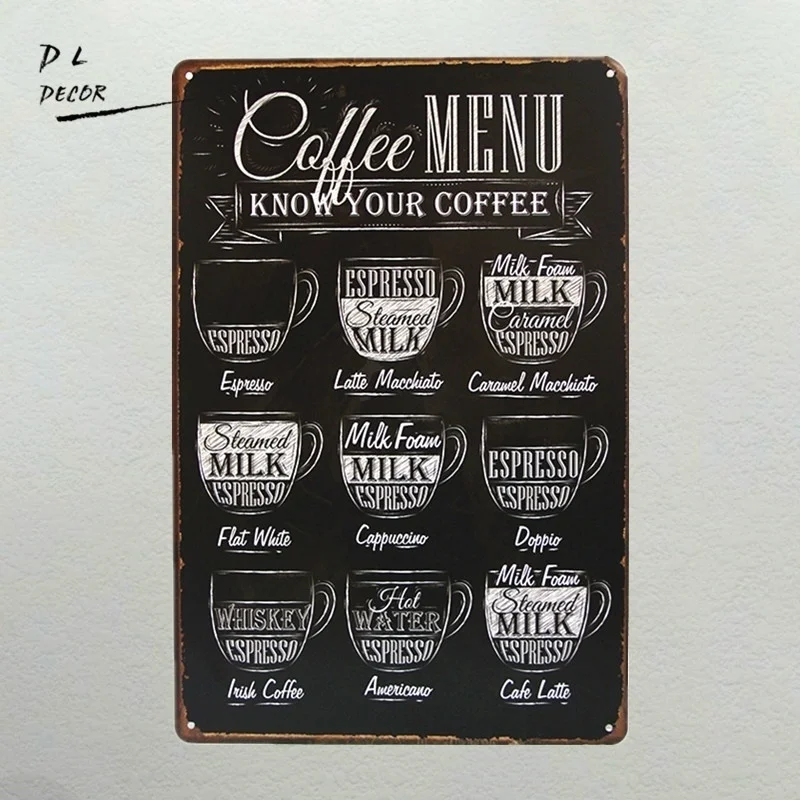 D L
DECOR
Coffee MENU
KNOW YOUR COFFEE
ESPRESSO
Espresso
ESPRESSO
Steamed
MILK
Latte Macchiato
Milk Foam
MILK
Caramel
ESPRESSO
Caramel Macchiato
Steamed
MILK
ESPRESSO
Flat White
Milk Foam
MILK
ESPRESSO
Cappuccino
ESPRESSO
Doppio
WHISKEY
ESPRESSO
Irish Coffee
Hot
WATER
ESPRESSO
Americano
Milk Foam
Steamed
MILK
ESPRESSO
Cafe Latte